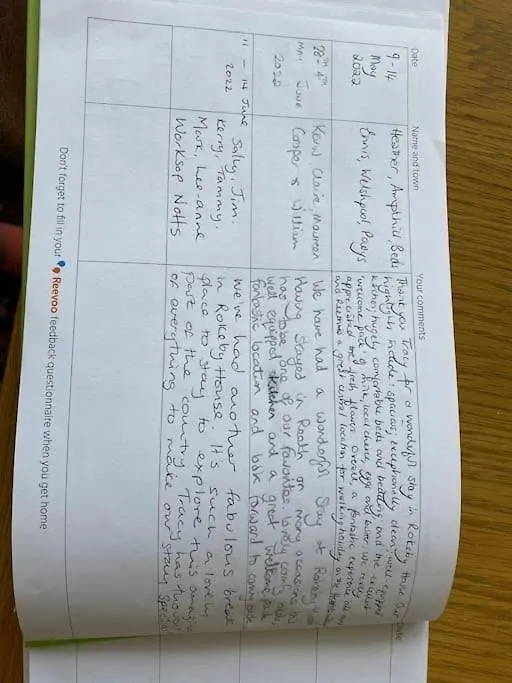 Date
Name and town
Your comments
9 - 14
May
2022
Heather, Ampthill, Beds
Ennis, Welshpool, Powys
Thank you Tracy for a wonderful stay in Rokeby House. Our
highlights include: spacious, exceptionally clean, well-equipped
kitchen, hugely comfortable beds and bedding and the
welcome pack of wine, local cheese, eggs and butter. We really
appreciated the fresh flowers. Overall, a fantastic experience
and a great central location for walking holiday
28TH - 4TH
MAY June
2022
Kevin, Claire, Maureen
Cooper & William
We have had a wonderful stay at Rokeby
Having stayed in on many occasions
has to be one of our favourites. lovely comfy beds,
well equipped kitchen and a great welcome pack
fantastic location and look forward to coming back
11 - 14 June
2022
Sally, Jim,
Kerry, Tammy,
Marc, Lee-anne
Worksop Notts
We've had another fabulous break
in Rokeby House. It's such a lovely
place to stay to explore this amazing
part of the country. Tracy has thought
of everything to make our stay special
Don't forget to fill in your Reevoo feedback questionnaire when you get home
Date